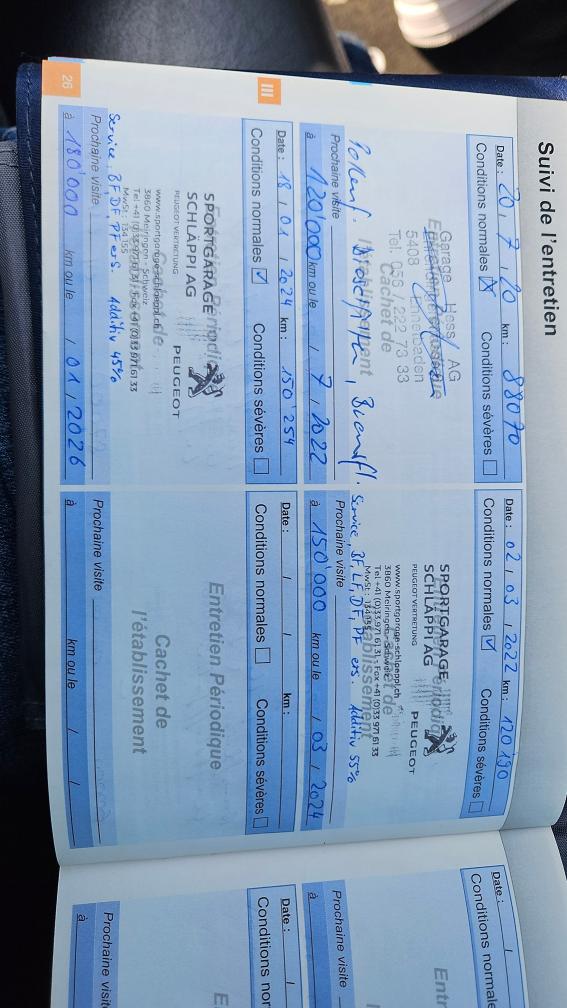 Suivi de l'entretien
Date : 20 / 7 / 20 km : 88070
Conditions normales ☒ Conditions sévères ☐
Garage Hess AG
5408 Ennetbaden
Tel. 056 / 222 73 33
Cachet de
l'établissement
Pollenf. Bremsfl.
Prochaine visite
à 120'000 km ou le / 7 / 2022
Date : 02 / 03 / 2022 km : 120190
Conditions normales ☑ Conditions sévères ☐
SPORTGARAGE
SCHLÄPPI AG
PEUGEOT VERTRETUNG PEUGEOT
www.sportgarage-schlaeppi.ch
3860 Meiringen - Schweiz
Tel +41 (0)33 971 61 31 - Fax +41 (0)33 971 61 33
MwSt.: 134 155
Service, BF, LF, DF, PF ers. Additiv 55%
Prochaine visite
à 150'000 km ou le / 03 / 2024
III
Date : 18 / 01 / 2024 km : 150'254
Conditions normales ☑ Conditions sévères ☐
Entretien Périodique
SPORTGARAGE
SCHLÄPPI AG
PEUGEOT VERTRETUNG PEUGEOT
www.sportgarage-schlaeppi.ch
3860 Meiringen - Schweiz
Tel +41 (0)33 971 61 31 - Fax +41 (0)33 971 61 33
MwSt.: 134 155
Service, BF, DF, PF ers. Additiv 45%
Prochaine visite
à 180'000 km ou le / 01 / 2026
Date : / / km :
Conditions normales ☐ Conditions sévères ☐
Entretien Périodique
Cachet de
l'établissement
Prochaine visite
à km ou le / /
26
Date : /
Conditions normale
Entr
Prochaine visite
à
Date : /
Conditions nor
E
Prochaine visit
à